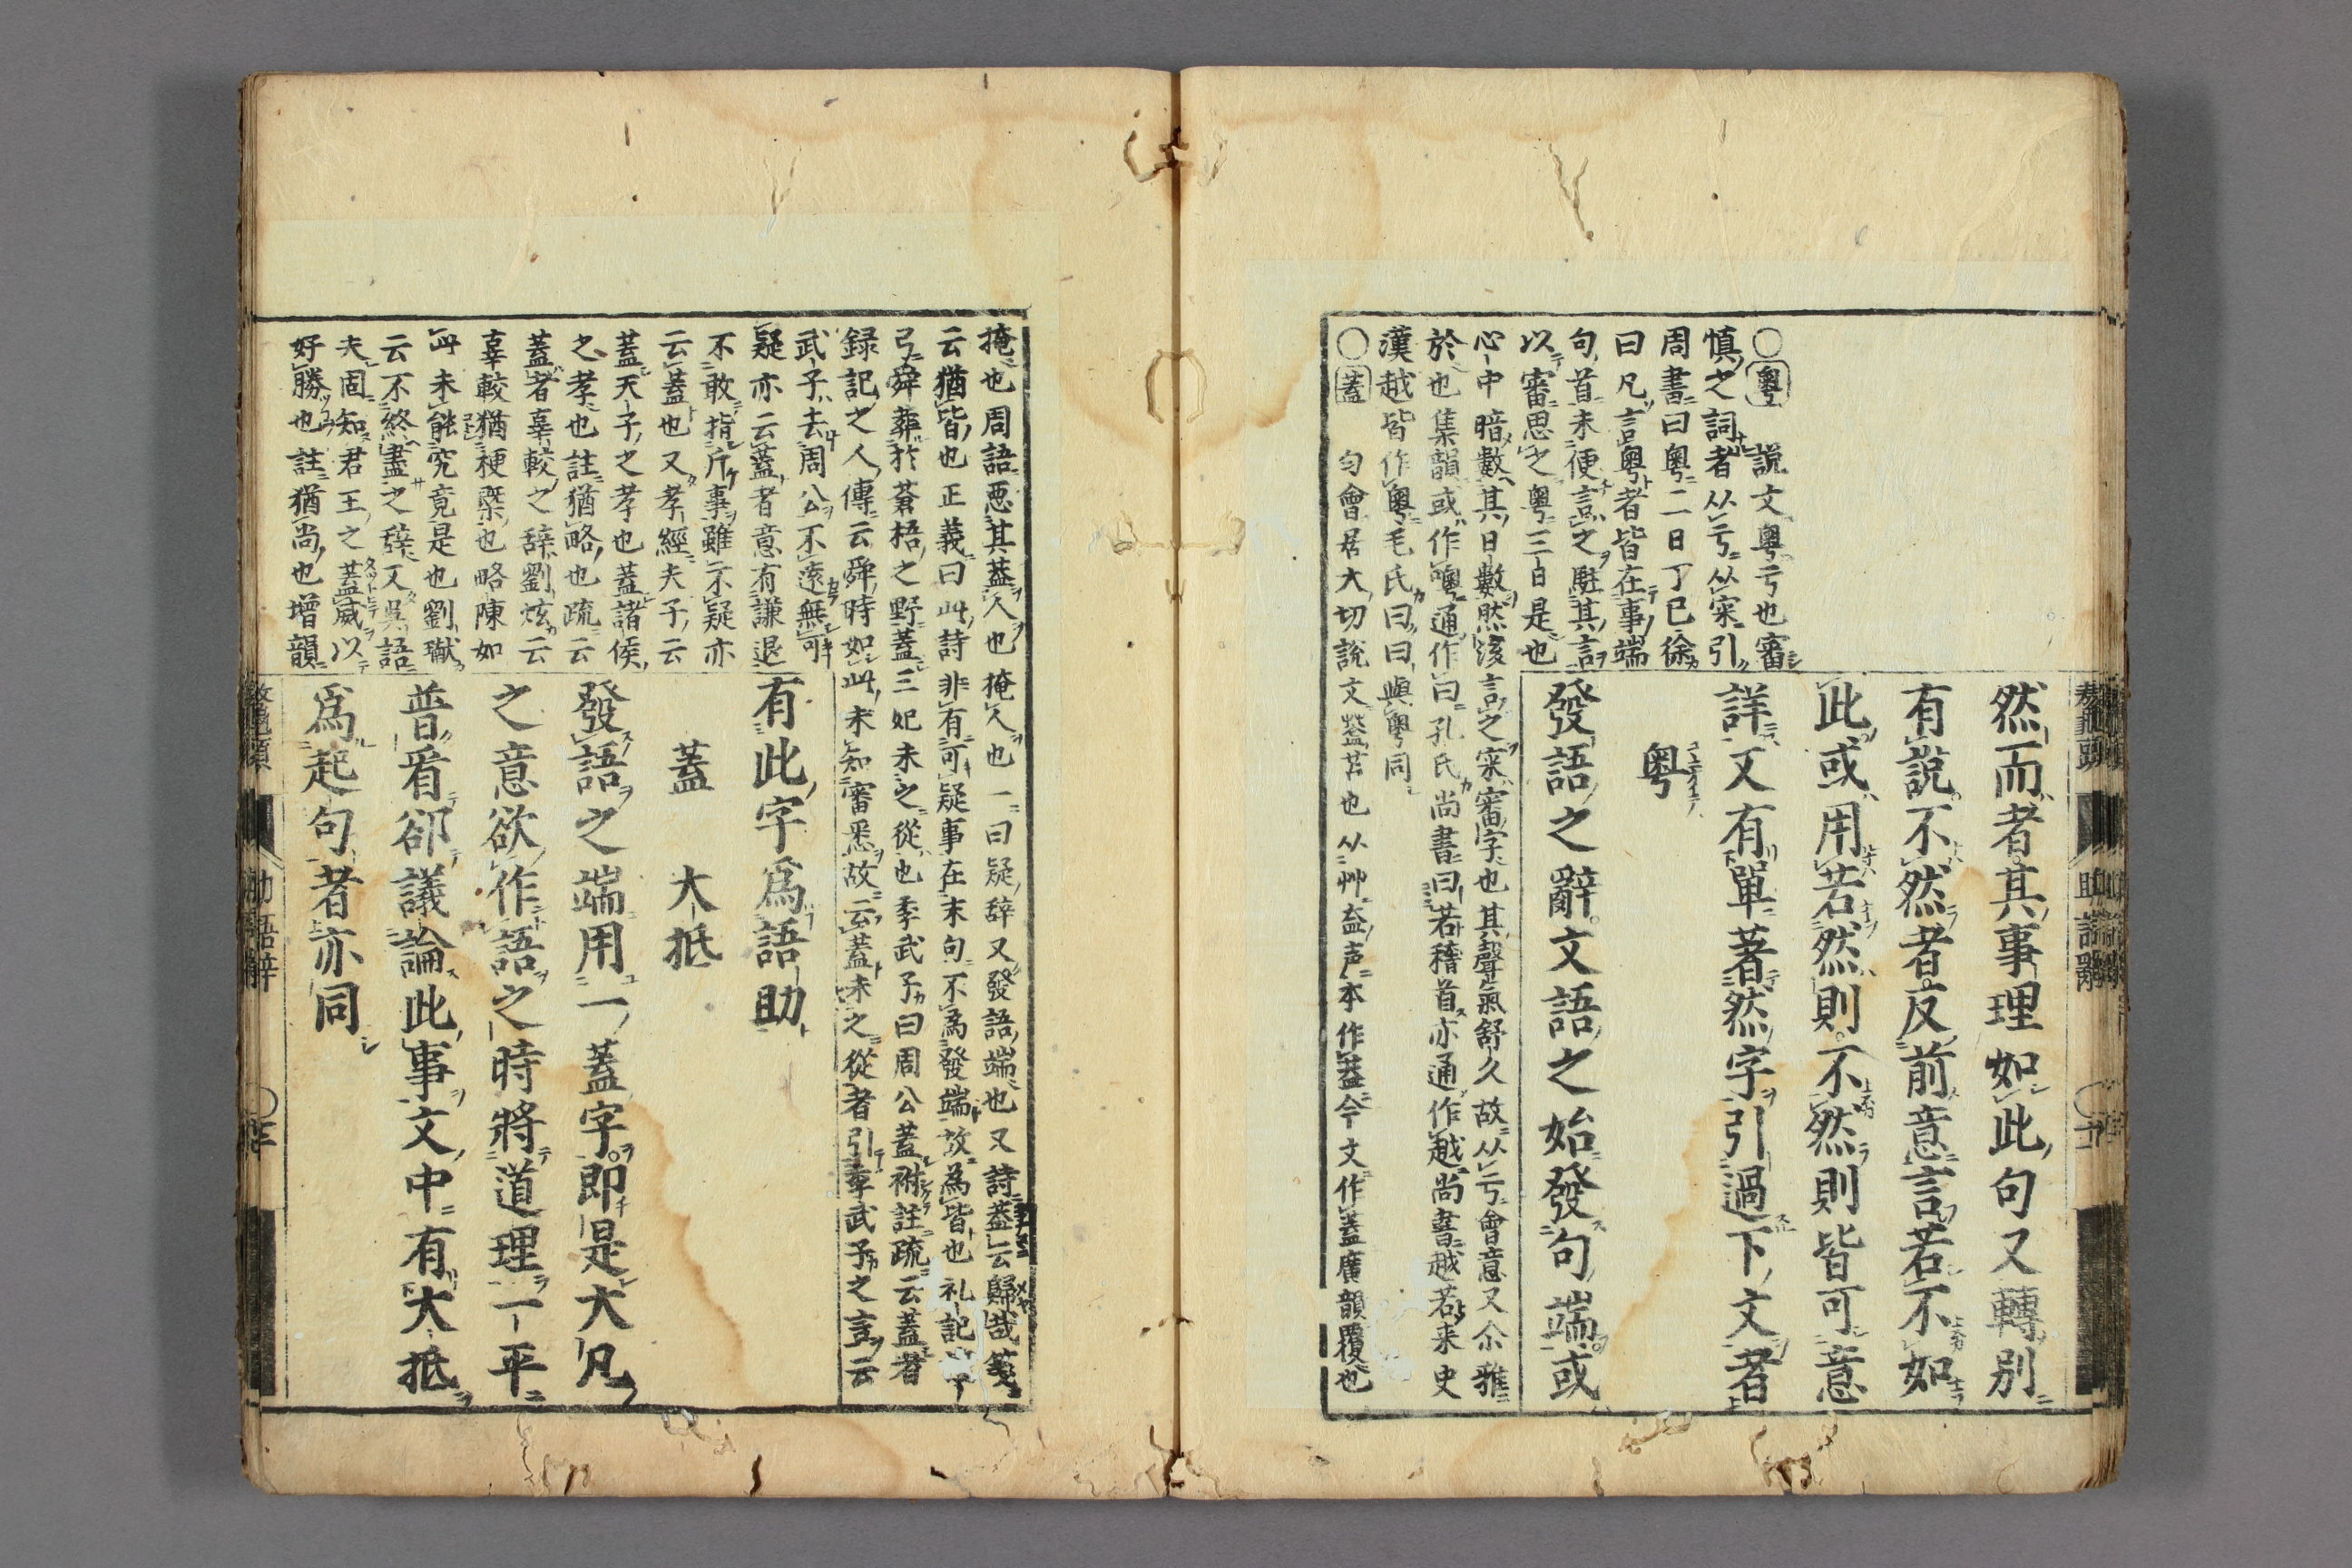 然而者其事理如此句又轉別
有說不然者反前意言若不如
此或用若然則不然則皆可意
詳又有單著然字引過下文者
粤
發語之辭文語之始發句端或
○粤 說文粤亏也審
慎之詞者从亏从宷引
周書曰粤二日丁巳徐
曰凡言粤者皆在事端
句首未便言之駐其言
以審思之粤三日是也
心中暗數其日數然後言之宷審字也其聲氣舒久故从亏會意又尒雅
於也集韻或作噢通作曰孔氏尚書曰若稽首亦通作越尚書越若来史
漢越皆作粤毛氏曰曰與粤同
○蓋 匀會居大切說文葢苫也从艸盇声本作葢今文作蓋廣韻覆也
掩也周語悪其葢人也掩人也一曰疑辞又發語端也又詩葢云歸哉箋
云猶皆也正義曰此詩非有可疑事在末句不為發端故為皆也礼記
弓舜葬於蒼梧之野蓋三妃未之從也季武子曰周公蓋祔註疏云蓋者
録記之人傳云舜時如此未知審悉故云蓋未之從者引季武子之言云
武子去周公不遠無可
疑亦云蓋者意有謙退
不敢指斥事雖不疑亦
云蓋也又孝經夫子云
蓋天子之孝也蓋諸侯
之孝也註猶略也疏云
蓋者辜較之辞劉炫云
辜較猶梗槩也略陳如
此未能究竟是也劉瓛
云不終盡之辞又吳語
夫固知君王之蓋威以
好勝也註猶尚也增韻
有此字爲語助
蓋 大抵
發語之端用一蓋字即是大凡
之意欲作語之時將道理一平
普看卻議論此事文中有大抵
爲起句者亦同
助語辭